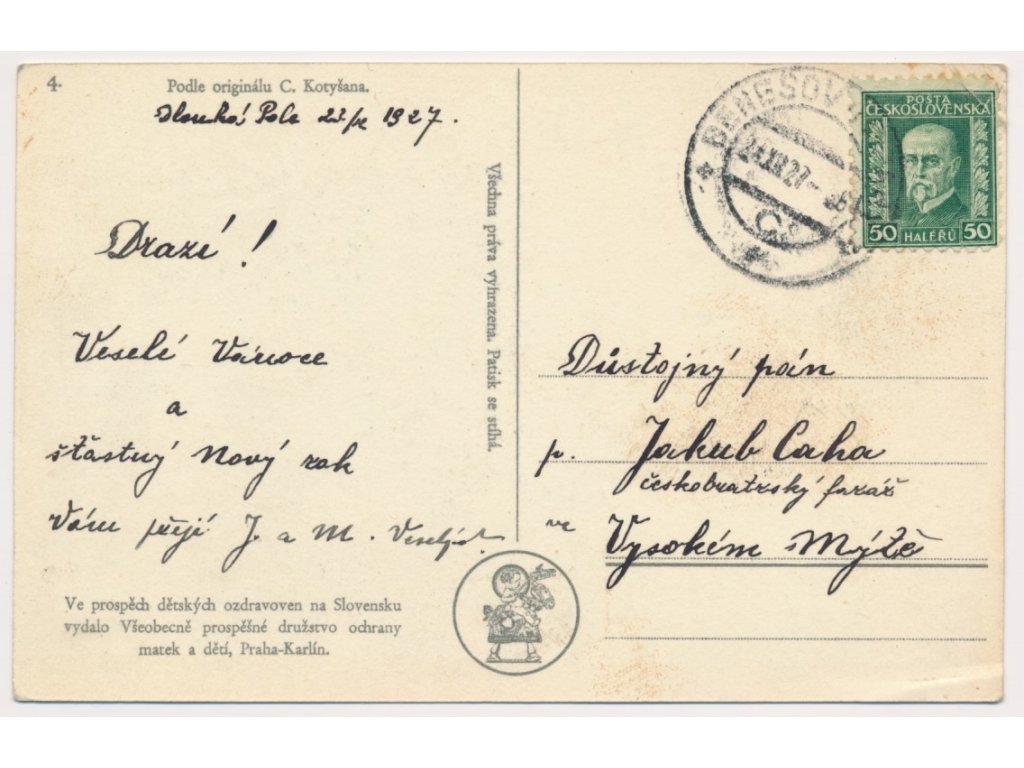 4.
Podle originálu C. Kotyšana.
Dlouhá Pole 1927.
Drazí!
Veselé Vánoce
a
šťastný Nový rok
Vám přejí J. a M.
Ve prospěch dětských ozdravoven na Slovensku
vydalo Všeobecně prospěšné družstvo ochrany
matek a dětí, Praha-Karlín.
Všechna práva vyhrazena. Patisk se stíhá.
BENEŠOV
24.XII.27
POŠTA
ČESKOSLOVENSKÁ
50 HALÉŘŮ 50
Důstojný pán
p. Jakub Caha
českobratrský farář
ve Vysokém Mýtě